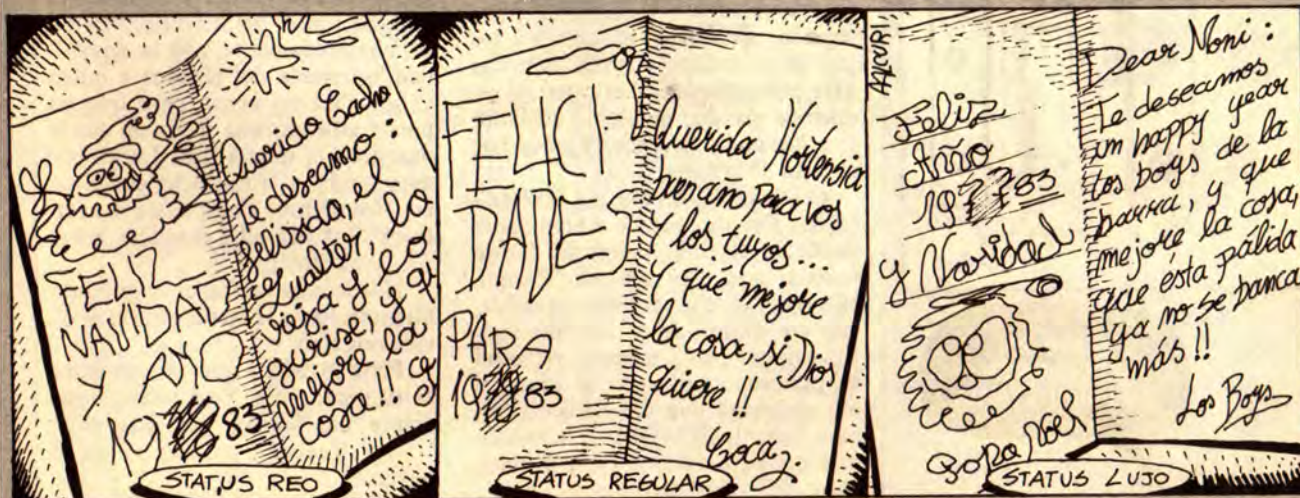 FELIZ
NAVIDAD
Y ANO
19 83
Querido Cacho
te deseamo:
felisida, el
Gualter, la
vieja y lo
gurise, y
mejore la
cosa!!
STATUS REO
FELICI-
DADES
PARA
19 83
Querida Hortensia
buen año para vos
Y los tuyos...
Y qué mejore
la cosa, si Dios
quiere!!
Coca
STATUS REGULAR
ALCURI
Feliz
Año
1977 83
y Navidad
Papa Noel
Dear Moni:
Te deseamos
um happy year
los boys de la
barra, y que
mejore la cosa,
que ésta pálida
ya no se banca
más!!
Los Boys
STATUS LUJO